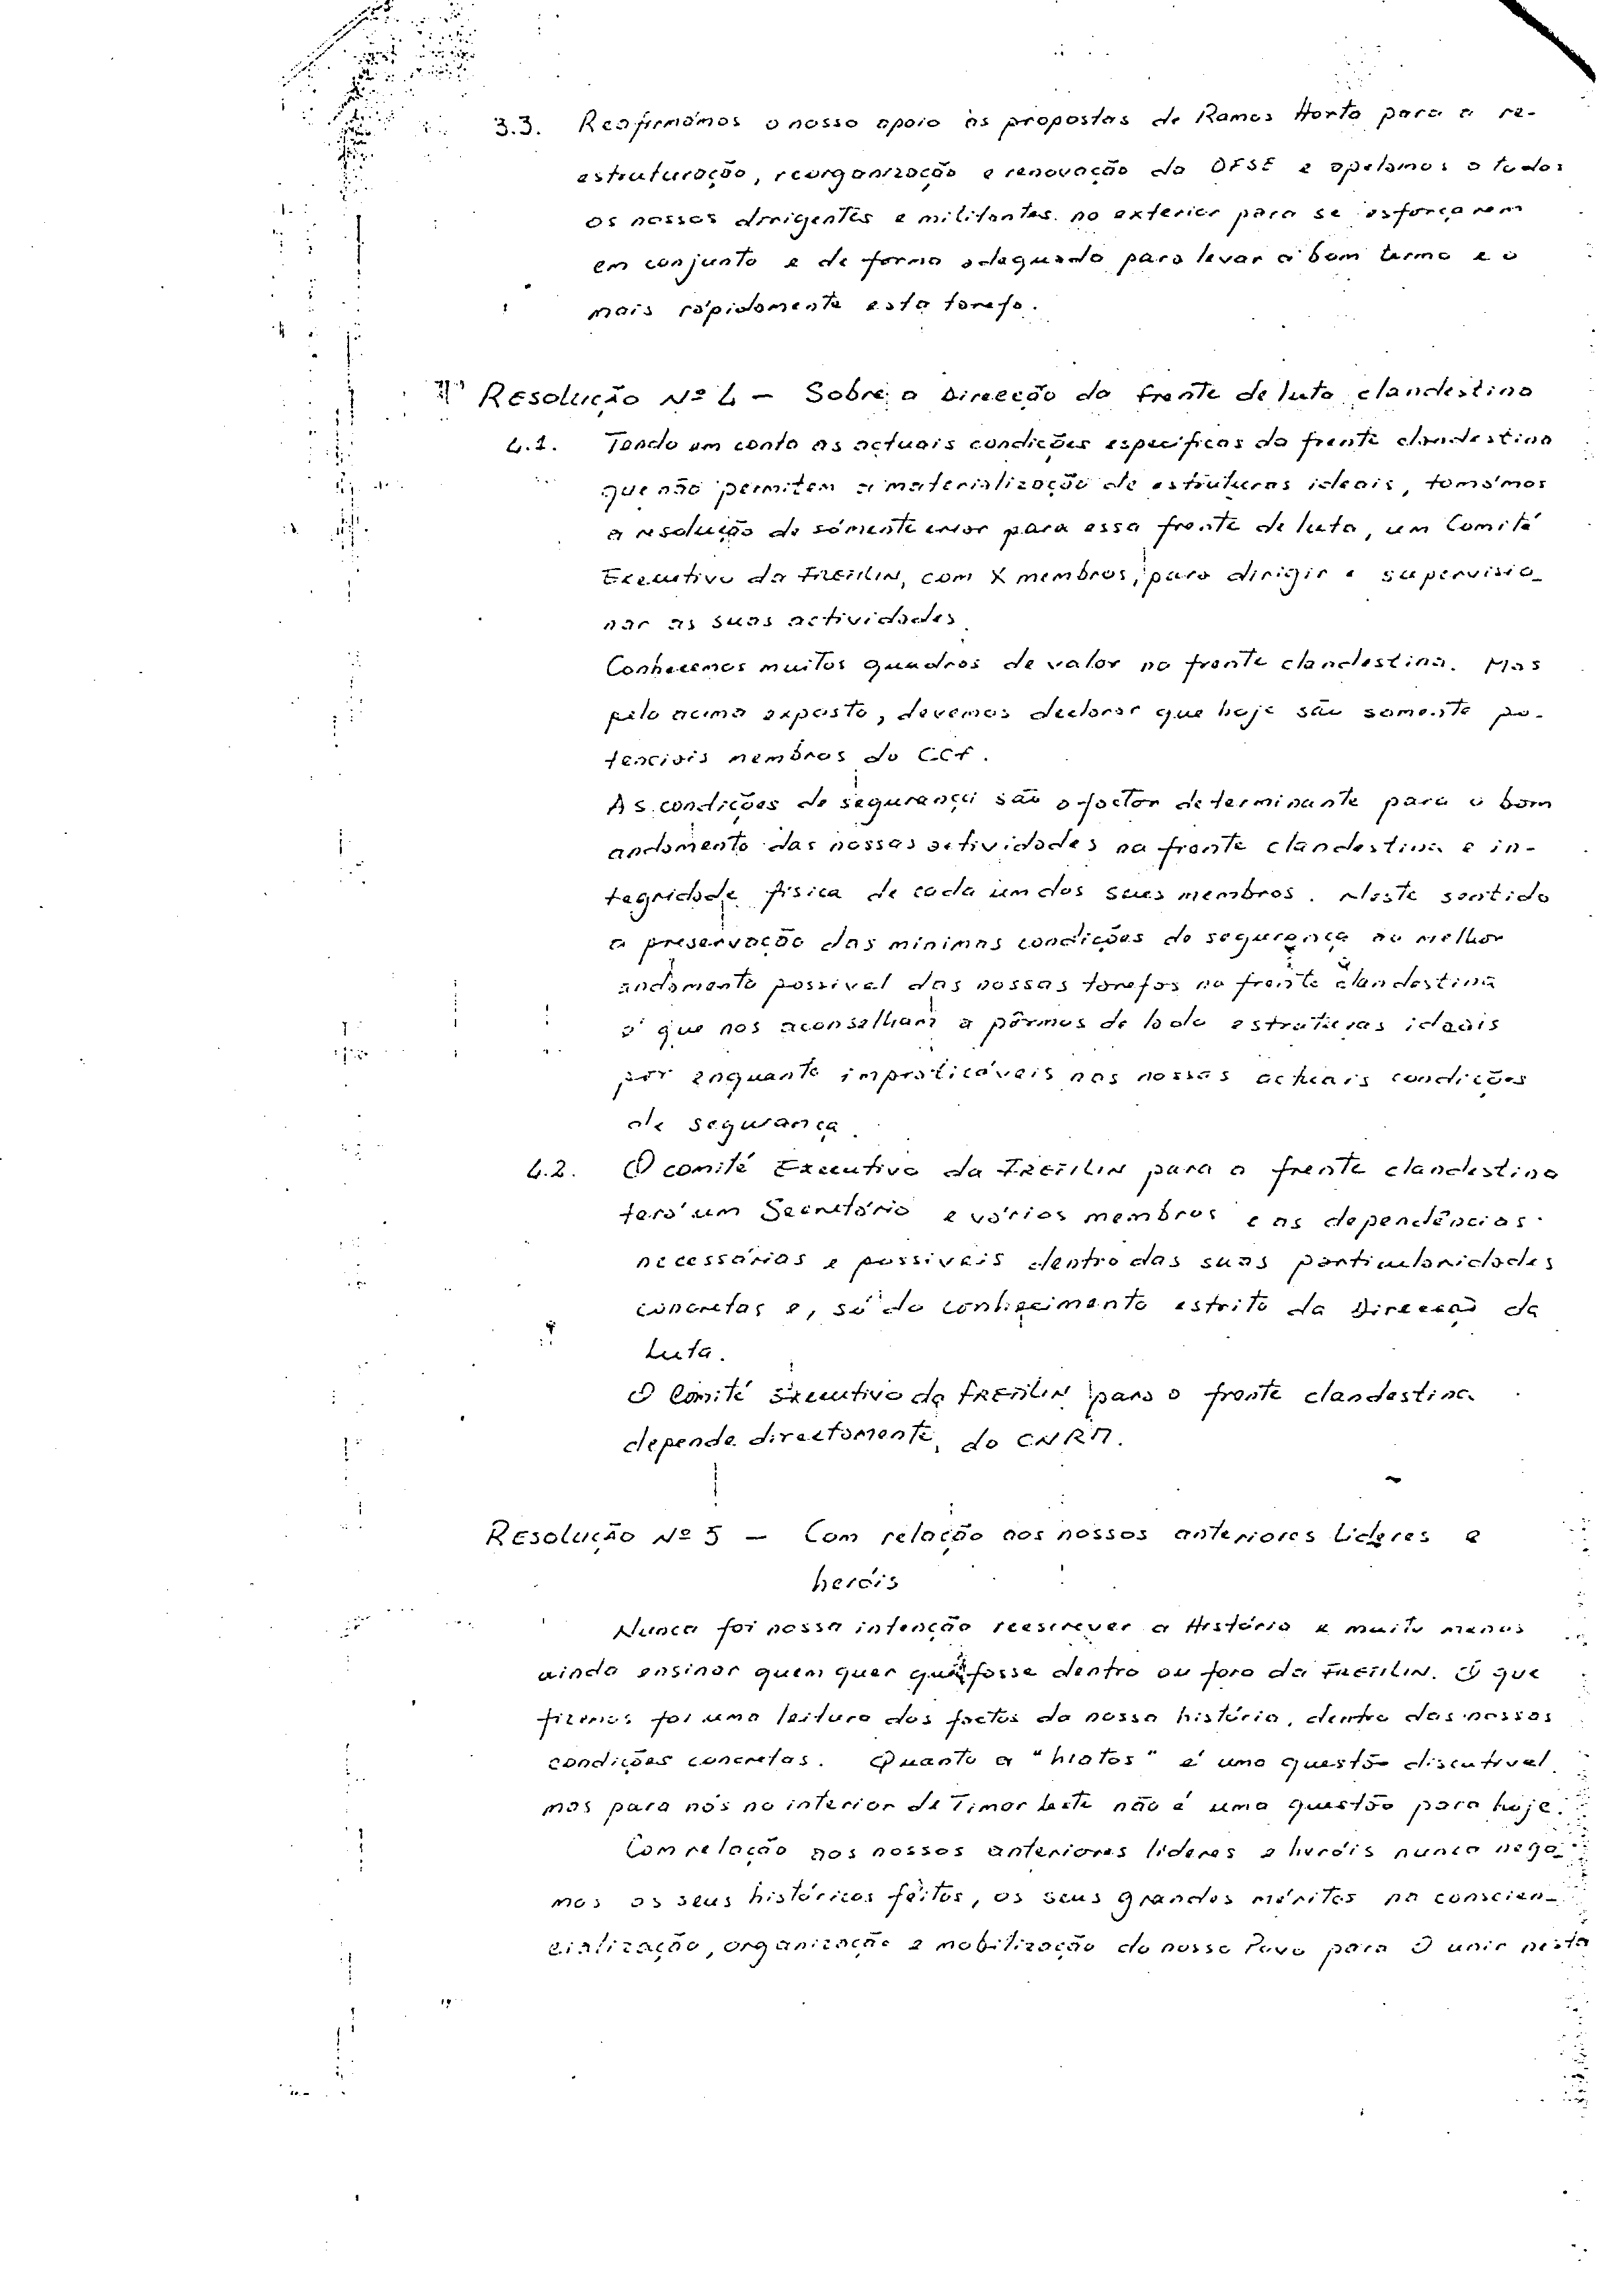 3.3. Reafirmámos o nosso apoio às propostas de Ramos Horta para a re-
estruturação, reorganização e renovação da DFSE e apelamos a todos
os nossos dirigentes e militantes no exterior para se esforçarem
em conjunto e de forma adequada para levar a bom termo e o
mais rápidamente esta tarefa.
Resolução Nº 4 — Sobre a Direcção da frente de luta clandestina
4.1. Tendo em conta as actuais condições especificas da frente clandestina
que não permitem a materialização de estruturas ideais, tomámos
a resolução de sómente criar para essa frente de luta, um Comité
Executivo da FRETILIN, com X membros, para dirigir e supervisio-
nar as suas actividades.
Conhecemos muitos quadros de valor na frente clandestina. Mas
pelo acima exposto, devemos declarar que hoje são somente po-
tenciais membros do CCF.
As condições de segurança são o factor determinante para o bom
andamento das nossas actividades na frente clandestina e in-
tegridade física de cada um dos seus membros. Neste sentido
a preservação das minimas condições de segurança ao melhor
andamento possivel das nossas tarefas na frente clandestina
é que nos aconselham a pôrmos de lado estruturas ideais
por enquanto impraticáveis nas nossas actuais condições
de segurança.
4.2. O comité Executivo da FRETILIN para a frente clandestina
terá um Secretário e vários membros e as dependências
necessárias e possiveis dentro das suas particularidades
concretas e, só do conhecimento estrito da Direcção da
Luta.
O Comité Executivo da FRETILIN para a frente clandestina
depende directamente, do CNRM.
Resolução Nº 5 — Com relação aos nossos anteriores Lideres e
heróis
Nunca foi nossa intenção reescrever a História e muito menos
ainda ensinar quem quer que fosse dentro ou fora da FRETILIN. O que
fizemos foi uma leitura dos factos da nossa história, dentro das nossas
condições concretas. Quanto a "hiatos" é uma questão discutivel
mas para nós no interior de Timor Leste não é uma questão para hoje.
Com relação aos nossos anteriores lideres e heróis nunca nega-
mos os seus históricos feitos, os seus grandes méritos na conscien-
cialização, organização e mobilização do nosso Povo para O unir nesta